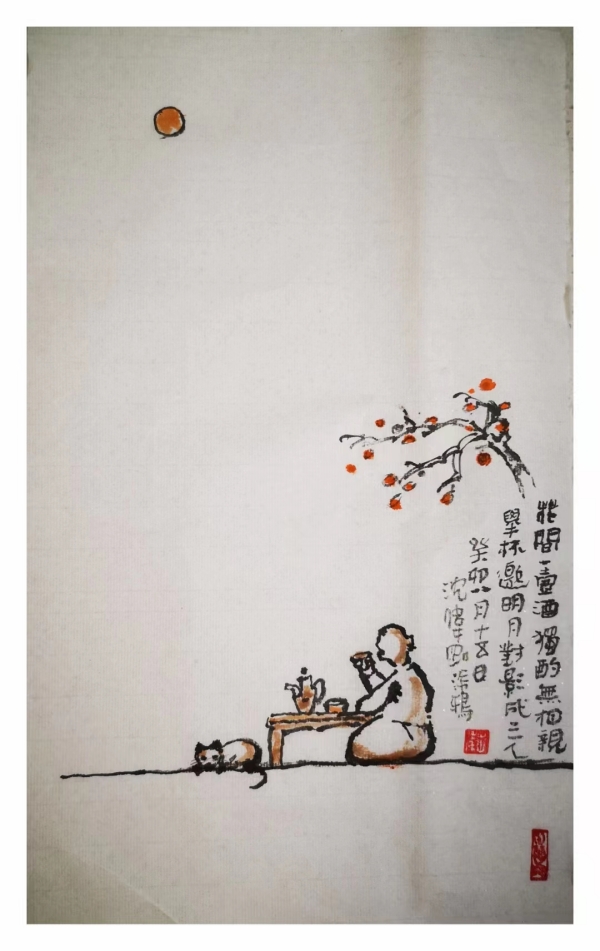 花間一壺酒獨酌無相親
舉杯邀明月對影成三人
癸卯八月十五日
沈 塗鴉